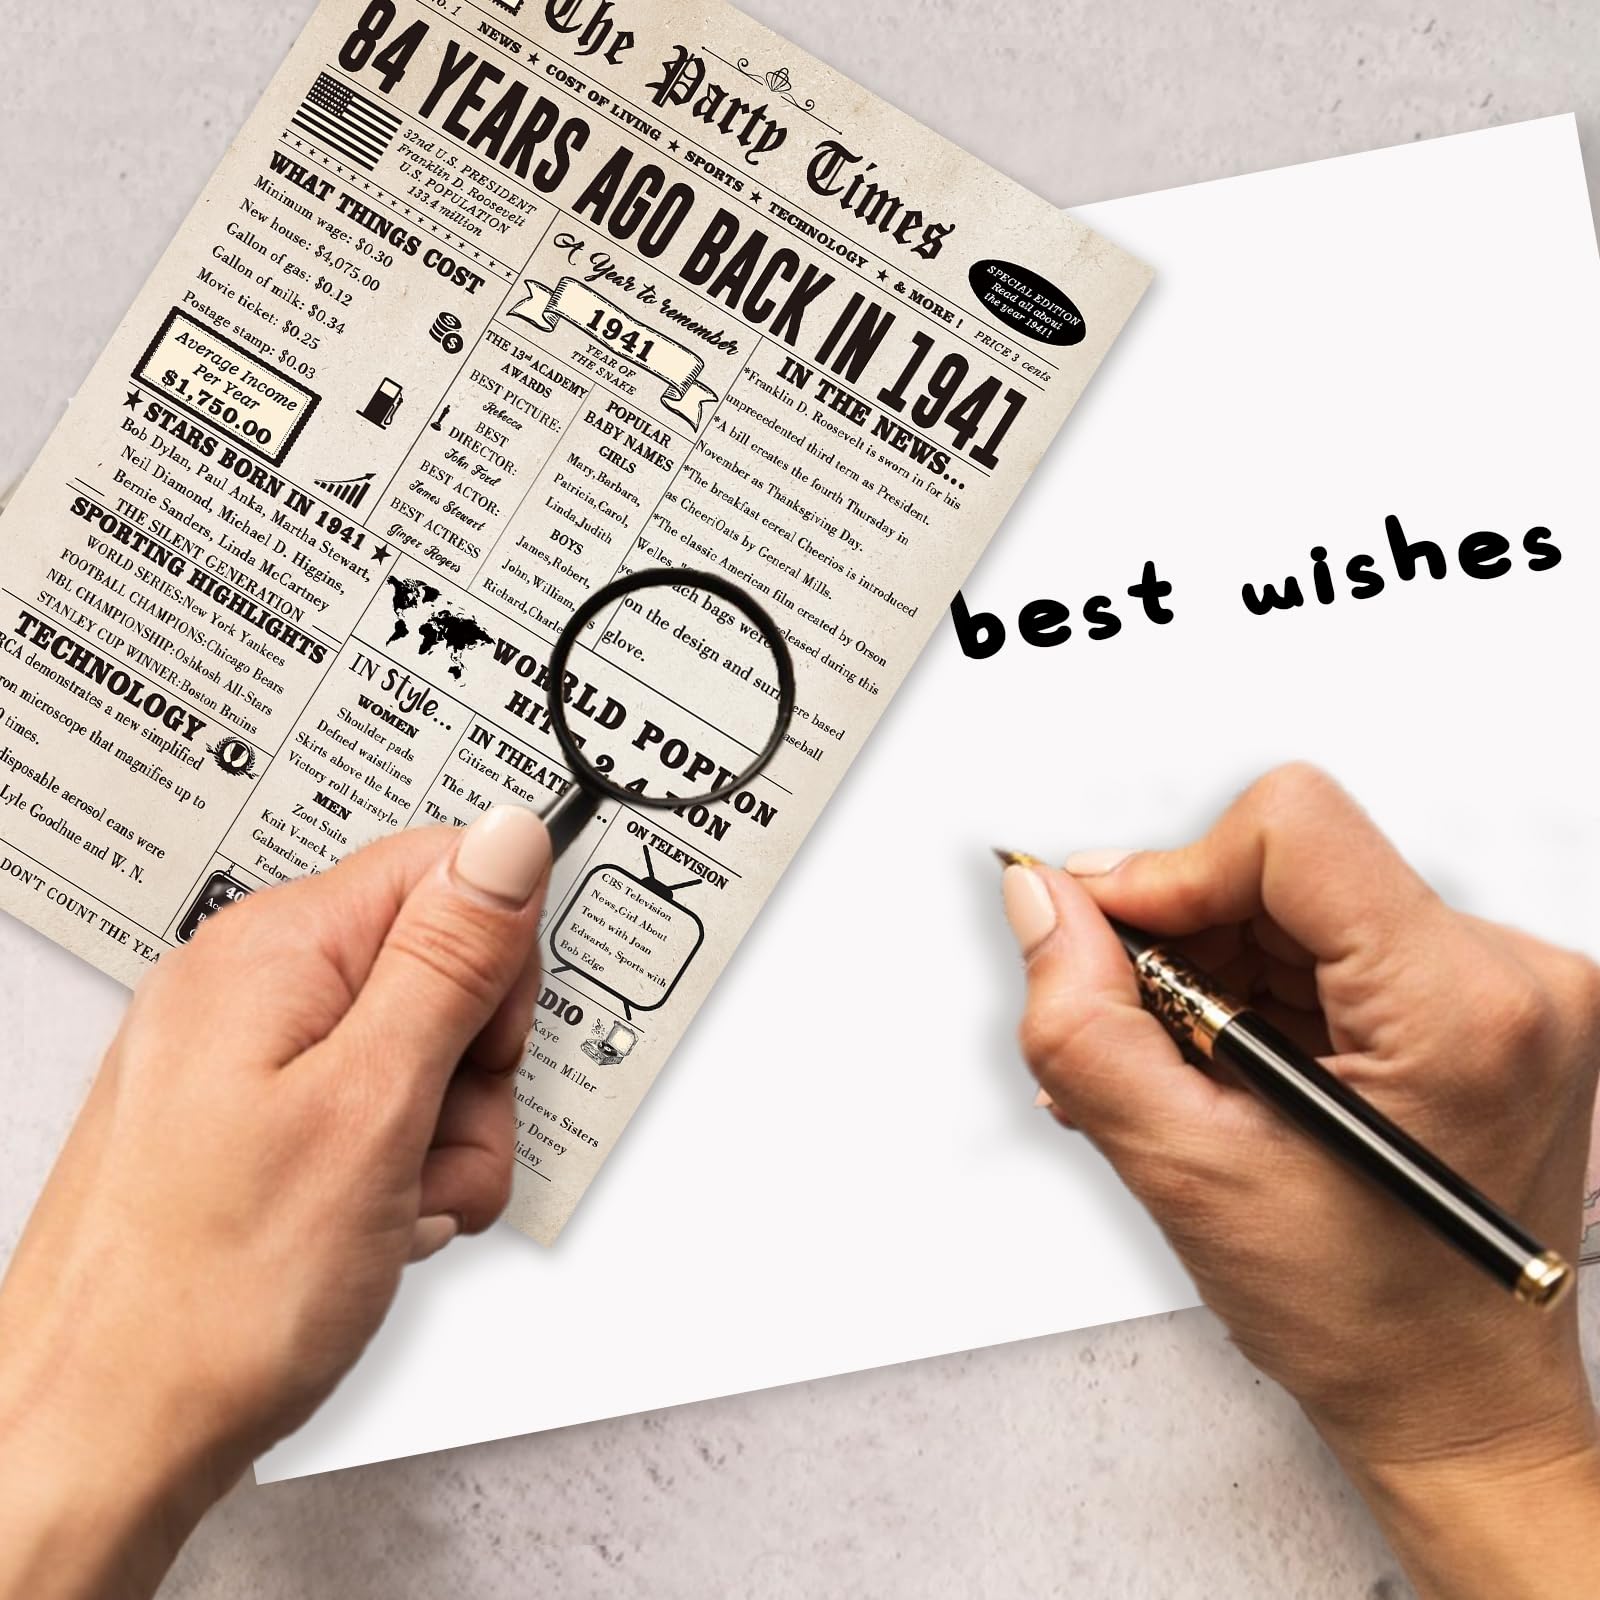 The Party Times
NEWS ★ COST OF LIVING ★ SPORTS ★ TECHNOLOGY ★ & MORE! PRICE 3 cents
84 YEARS AGO BACK IN 1941
SPECIAL EDITION
Read all about
the year 1941!
32nd U.S. PRESIDENT
Franklin D. Roosevelt
U.S. POPULATION
133.4 million
WHAT THINGS COST
Minimum wage: $0.30
New house: $4,075.00
Gallon of gas: $0.12
Gallon of milk: $0.34
Movie ticket: $0.25
Postage stamp: $0.03
Average Income
Per Year
$1,750.00
★ STARS BORN IN 1941 ★
Bob Dylan, Paul Anka, Martha Stewart,
Neil Diamond, Michael D. Higgins,
Bernie Sanders, Linda McCartney
THE SILENT GENERATION
SPORTING HIGHLIGHTS
WORLD SERIES:New York Yankees
FOOTBALL CHAMPIONS:Chicago Bears
NBL CHAMPIONSHIP:Oshkosh All-Stars
STANLEY CUP WINNER:Boston Bruins
TECHNOLOGY
RCA demonstrates a new simplified
microscope that magnifies up to
times.
disposable aerosol cans were
Lyle Goodhue and W. N.
DON'T COUNT THE
A Year to remember
1941
YEAR OF
THE SNAKE
THE 13rd ACADEMY
AWARDS
BEST PICTURE:
Rebecca
BEST
DIRECTOR:
John Ford
BEST ACTOR:
James Stewart
BEST ACTRESS
Ginger Rogers
POPULAR
BABY NAMES
GIRLS
Mary,Barbara,
Patricia,Carol,
Linda,Judith
BOYS
James,Robert,
John,William,
Richard,Charles
IN THE NEWS...
*Franklin D. Roosevelt is sworn in for his
unprecedented third term as President.
*A bill creates the fourth Thursday in
November as Thanksgiving Day.
*The breakfast cereal Cheerios is introduced
as CheeriOats by General Mills.
*The classic American film created by Orson
Welles, released during this
bags were
on the design and were based
glove. baseball
WORLD
HITS 2.4
IN Style...
WOMEN
Shoulder pads
Defned waistlines
Skirts above the knee
Victory roll hairstyle
MEN
Zoot Suits
Knit V-neck
Gabardine
IN
Citizen Kane
The
The
40
ON TELEVISION
CBS Television
News,Girl About
Towh with Joan
Edwards, Sports with
Bob Edge
Kaye
Glenn Miller
Andrews Sisters
Dorsey
best wishes